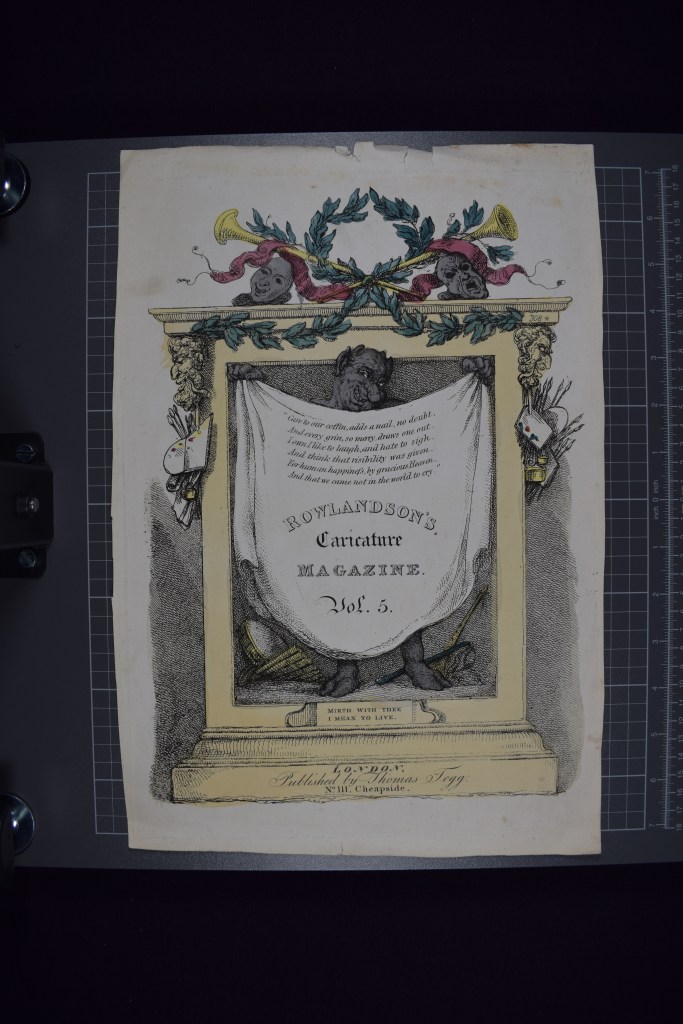 "Care to our coffin, adds a nail, no doubt.
And every grin, so merry, draws one out.
I own I like to laugh, and hate to sigh.
And think that risibility was given.
For human happiness, by gracious Heaven.
And that we came not in the world to cry."
ROWLANDSON'S.
Caricature
MAGAZINE.
Vol. 5.
MIRTH WITH THEE
I MEAN TO LIVE.
LONDON,
Published by Thomas Tegg.
No 111, Cheapside.